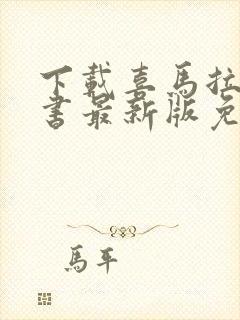 下載喜馬拉
書最新版免
馬平